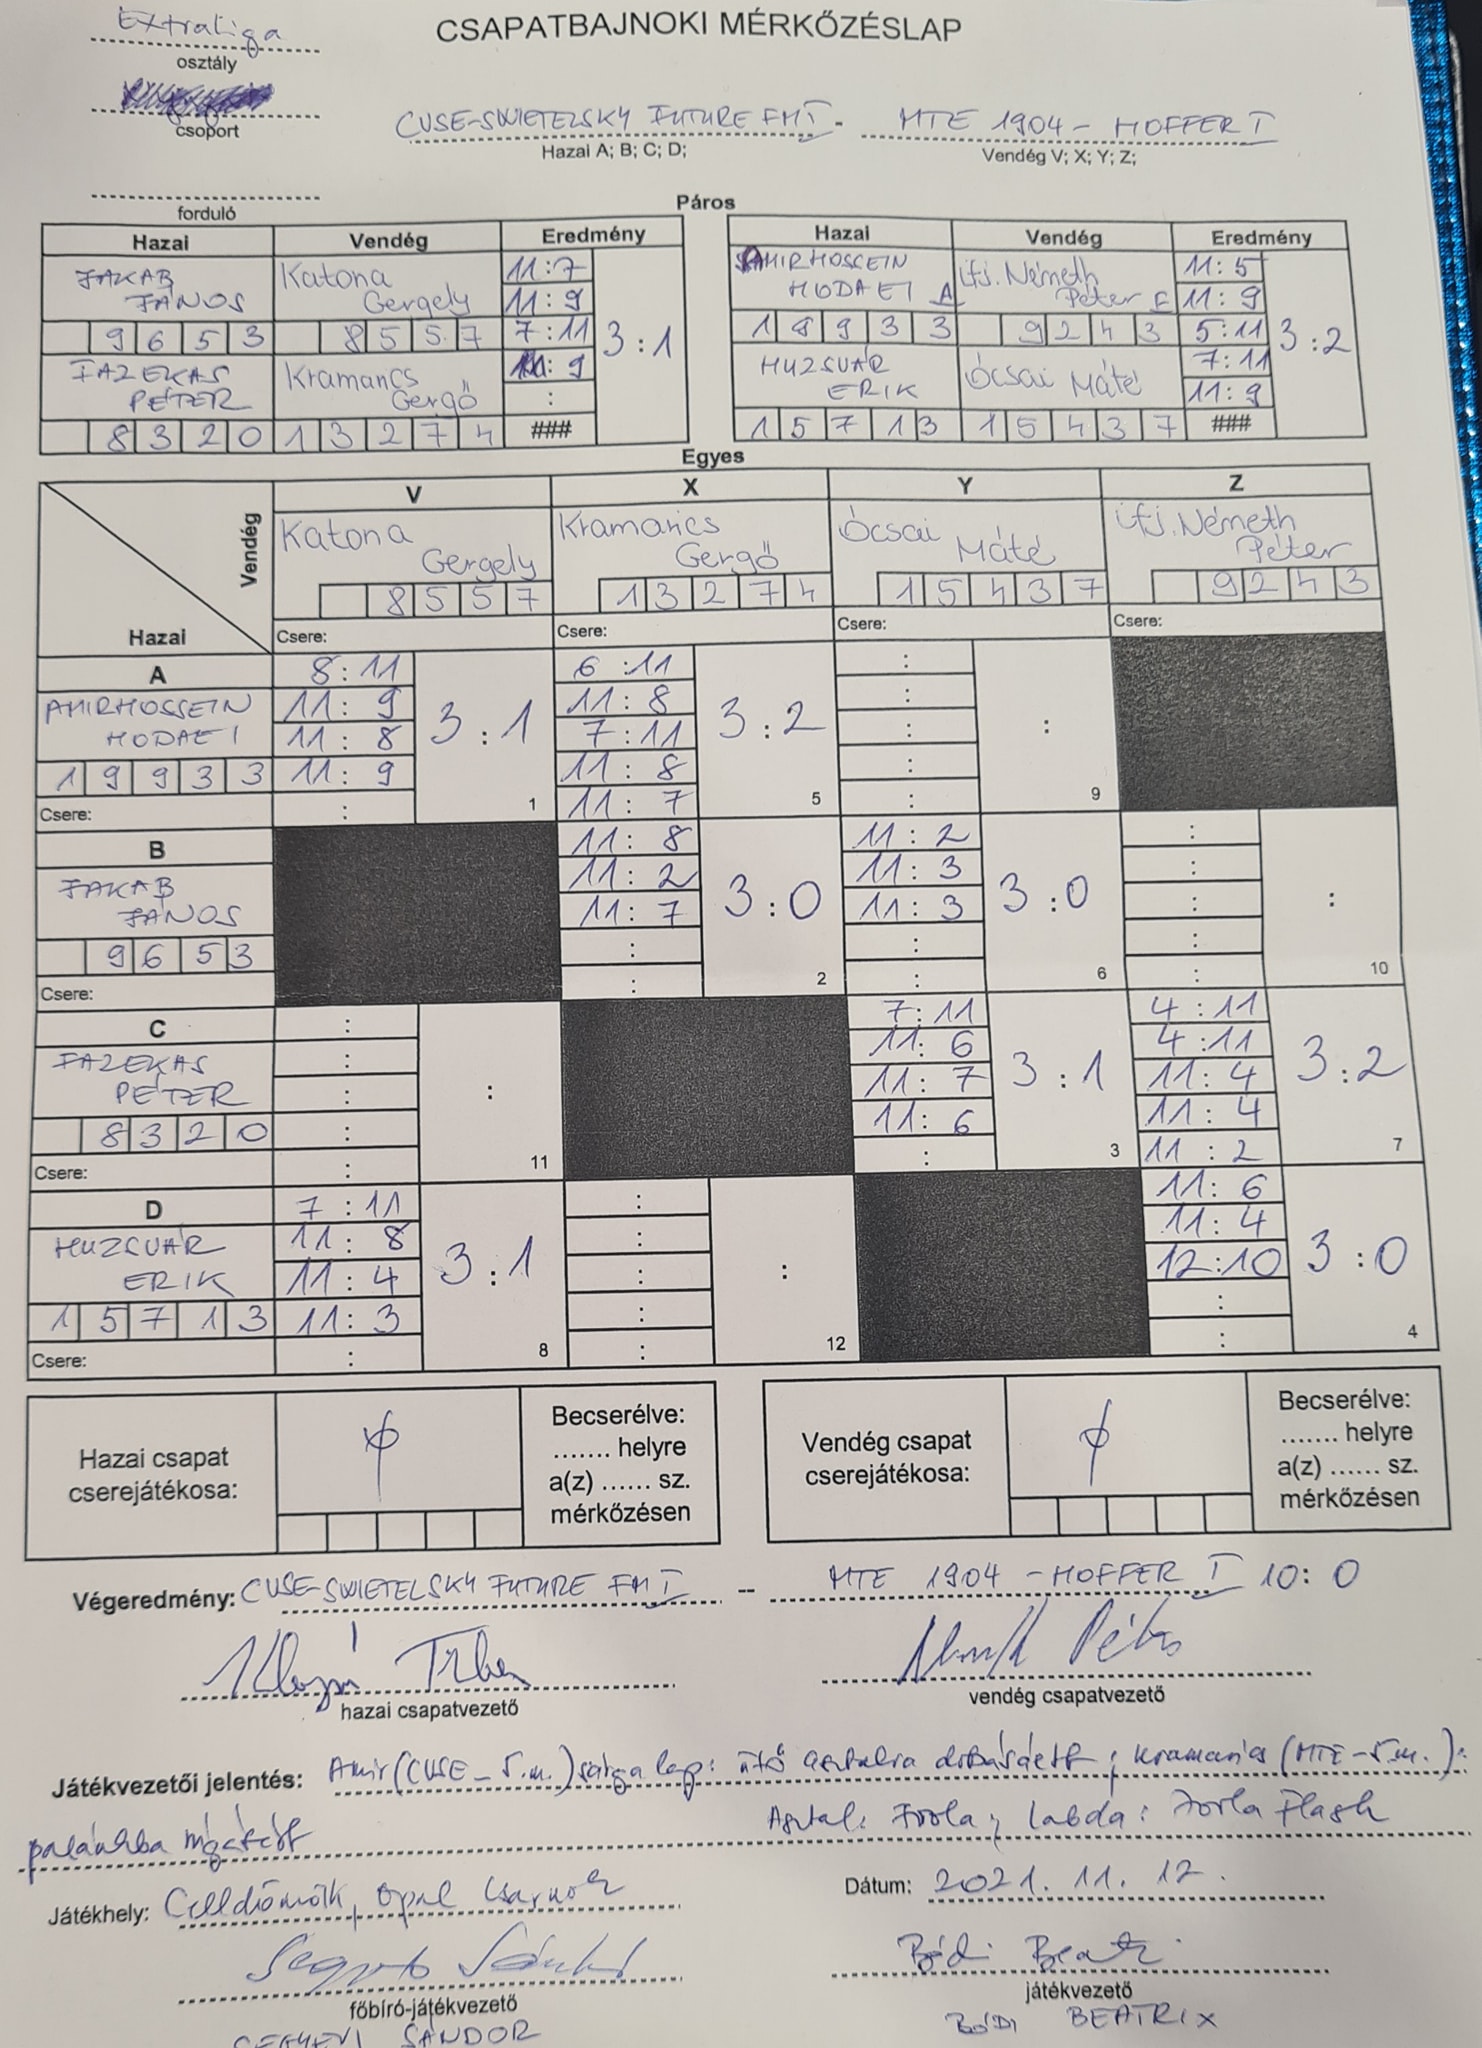 Extraliga
CSAPATBAJNOKI MÉRKŐZÉSLAP
osztály
csoport
CVSE-SWIETELSKY FUTURE FMT I - MTE 1904 - HOFFER I
Hazai A; B; C; D; Vendég V; X; Y; Z;
forduló
Páros
Hazai Vendég Eredmény
JAKAB JÁNOS
9653
Katona Gergely
8557
FAZEKAS PÉTER
8320
Kramarics Gergő
13274
11:7
11:9
7:11
11:9
:
###
3:1
Hazai Vendég Eredmény
AMIRHOSSEIN HODAEI A
19933
ifj. Németh Péter E
9243
HUZSVÁR ERIK
15713
Ócsai Máté
15437
11:5
11:9
5:11
7:11
11:9
###
3:2
Egyes
Vendég
Hazai
V
Katona Gergely
8557
Csere:
X
Kramarics Gergő
13274
Csere:
Y
Ócsai Máté
15437
Csere:
Z
ifj. Németh Péter
9243
Csere:
A
AMIRHOSSEIN HODAEI
19933
Csere:
8:11
11:9
11:8
11:9
:
3:1
1
6:11
11:8
7:11
11:8
11:7
3:2
5
:
:
:
:
:
:
9
B
JAKAB JÁNOS
9653
Csere:
11:8
11:2
11:7
:
:
3:0
2
11:2
11:3
11:3
:
:
3:0
6
:
:
:
:
:
:
10
C
FAZEKAS PÉTER
8320
Csere:
:
:
:
:
:
:
11
7:11
11:6
11:7
11:6
:
3:1
3
4:11
4:11
11:4
11:4
11:2
3:2
7
D
HUZSVÁR ERIK
15713
Csere:
7:11
11:8
11:4
11:3
:
3:1
8
:
:
:
:
:
:
12
11:6
11:4
12:10
:
:
3:0
4
Hazai csapat cserejátékosa:
Becserélve:
....... helyre
a(z) ...... sz.
mérkőzésen
Vendég csapat cserejátékosa:
Becserélve:
....... helyre
a(z) ...... sz.
mérkőzésen
Végeredmény: CVSE-SWIETELSKY FUTURE FMT I -- MTE 1904 - HOFFER I 10:0
hazai csapatvezető
Péter
vendég csapatvezető
Játékvezetői jelentés: Amir (CVSE - 5.m.) sárga lap: ütő asztalra dobásáért; Kramarics (MTE - 5.m.):
palánkba rúgásért Asztal: Joola; Labda: Joola Flash
Játékhely: Celldömölk, Opál Csarnok Dátum: 2021.11.12.
Bódi Beatrix
főbíró-játékvezető játékvezető
SÁNDOR BÓDI BEATRIX